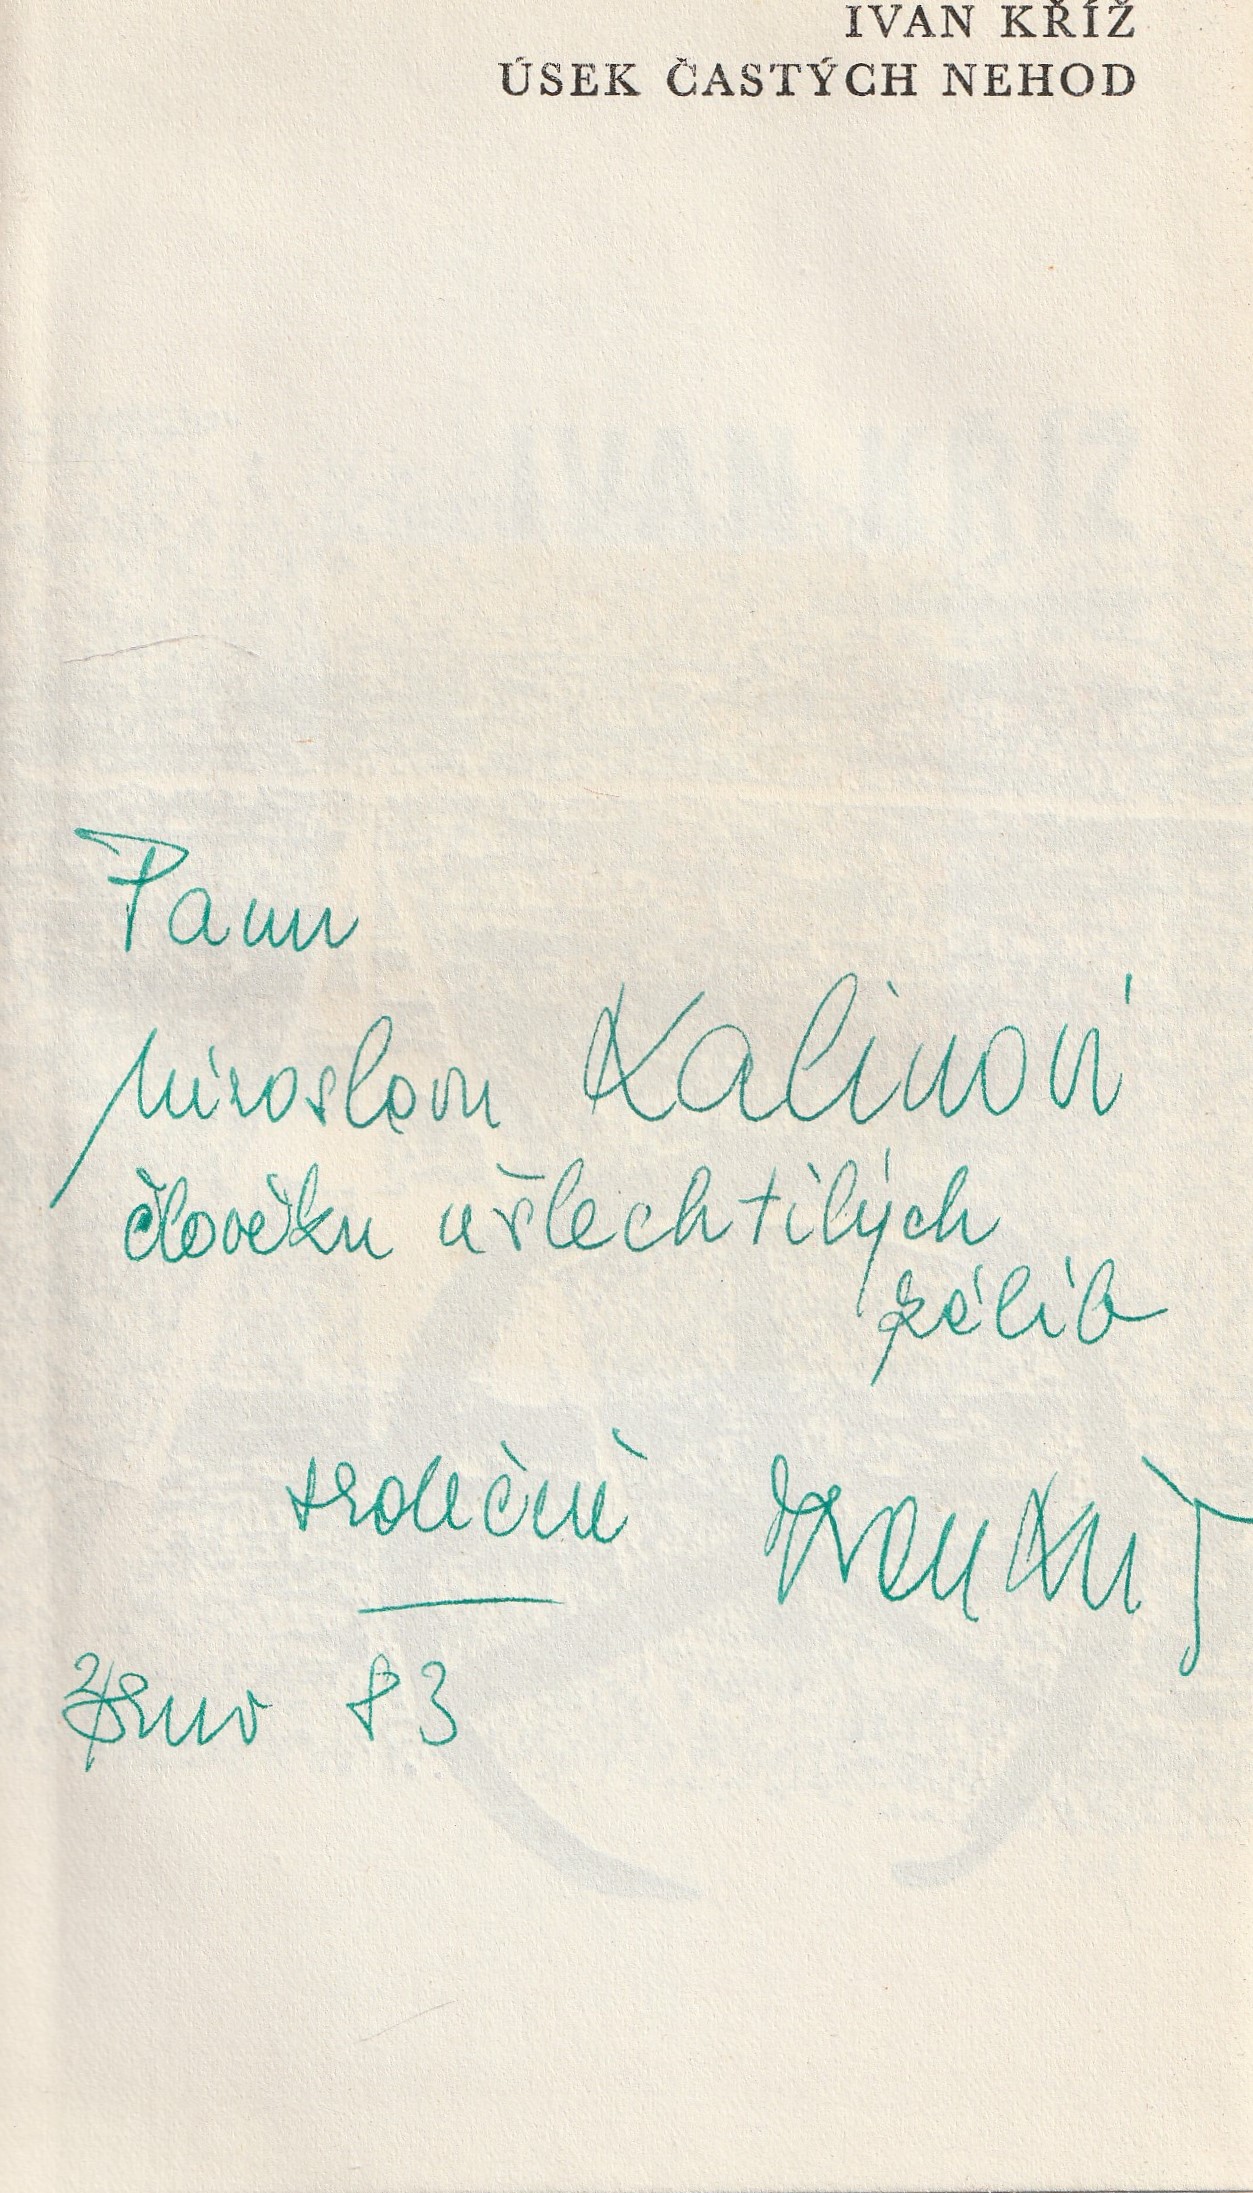 IVAN KŘÍŽ
ÚSEK ČASTÝCH NEHOD
Panu
Miroslavu Kalinovi
člověku ušlechtilých
zálib
srdečně Ivan Kříž
Brno 83